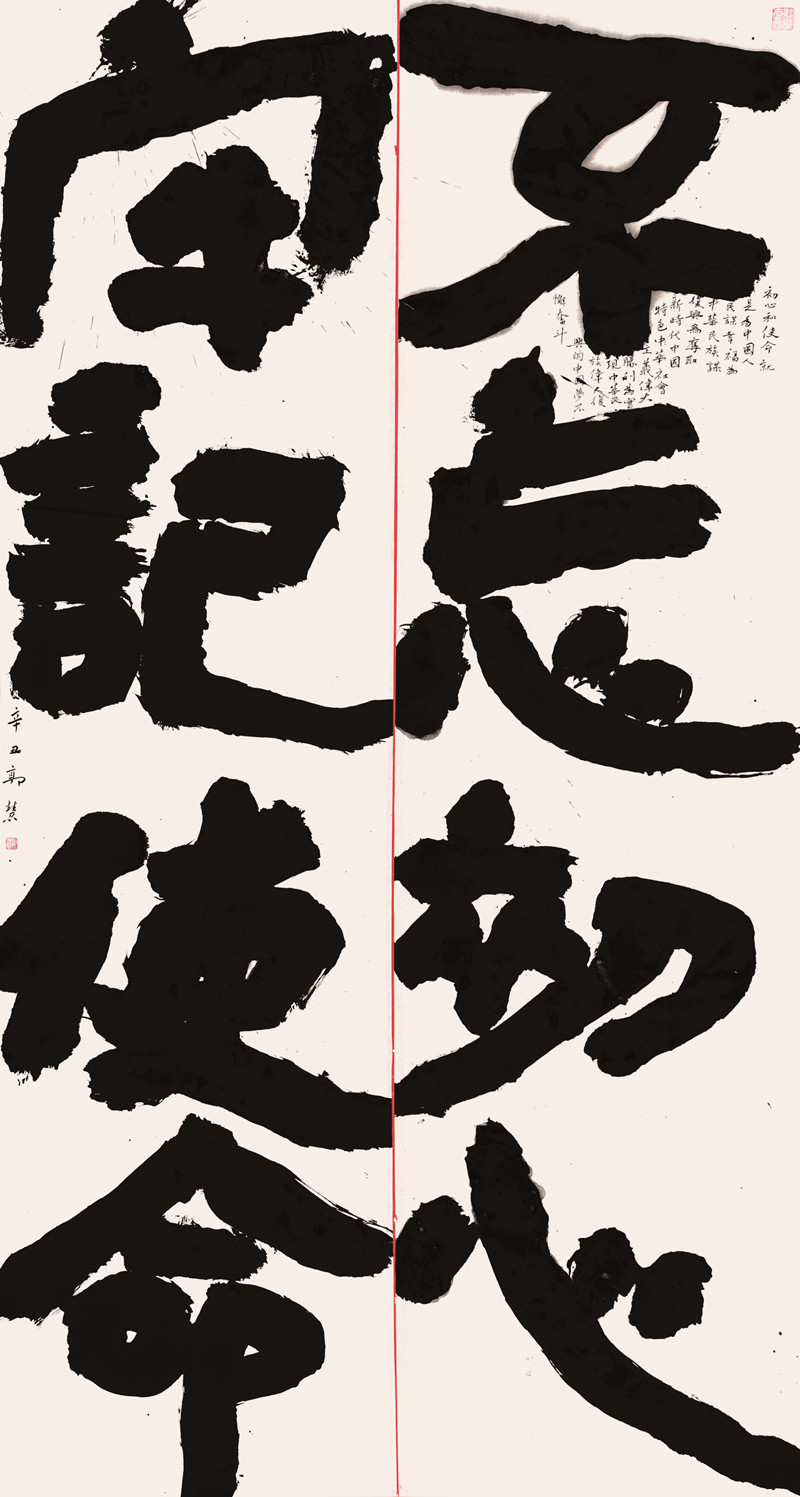 不忘初心
初心和使命就
是为中國人
民謀幸福為
中華民族謀
復興為奪取
新時代中國
特色中華社會
主義偉大
勝利為實
現中華民
族偉大復
興的中國夢不
懈奮斗
牢記使命
辛丑郭慧